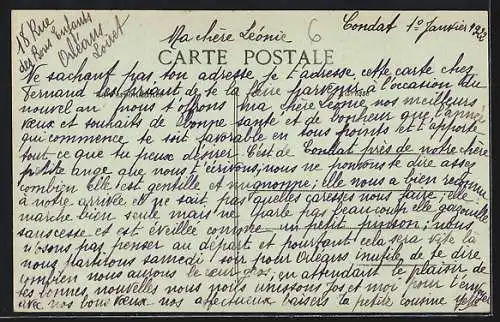 18 Rue
des Bons Enfants
Orléans
Loiret
Condat 1º Janvier 1922
Ma chère Léonie 6
CARTE POSTALE
Ne sachant pas ton adresse je t'adresse cette carte chez
Fernand les priant de te la faire parvenir à l'occasion du
nouvel an nous t'offrons ma chère Léonie nos meilleurs
vœux et souhaits de bonne santé et de bonheur que l'année
qui commence te soit favorable en tous points et t'apporte
tout ce que tu peux désirer. C'est de Condat près de notre chère
petite ange que nous t'écrivons; nous ne pouvons te dire assez
combien Elle est gentille et mignonne; elle nous a bien reconnu
à notre arrivée et ne sait pas quelles caresses nous faire; elle
marche bien seule mais ne parle pas beaucoup elle gazouille
sans cesse et est éveillée comme un petit pinson; nous
n'osons pas penser au départ et pourtant cela sera vite là
nous partirons samedi soir pour Orléans inutile de te dire
combien nous aurons le cœur gros; en attendant le plaisir de
tes bonnes nouvelles nous nous unissons Jos et moi pour t'envoyer
avec nos bons vœux nos affectueux baisers la petite cousine